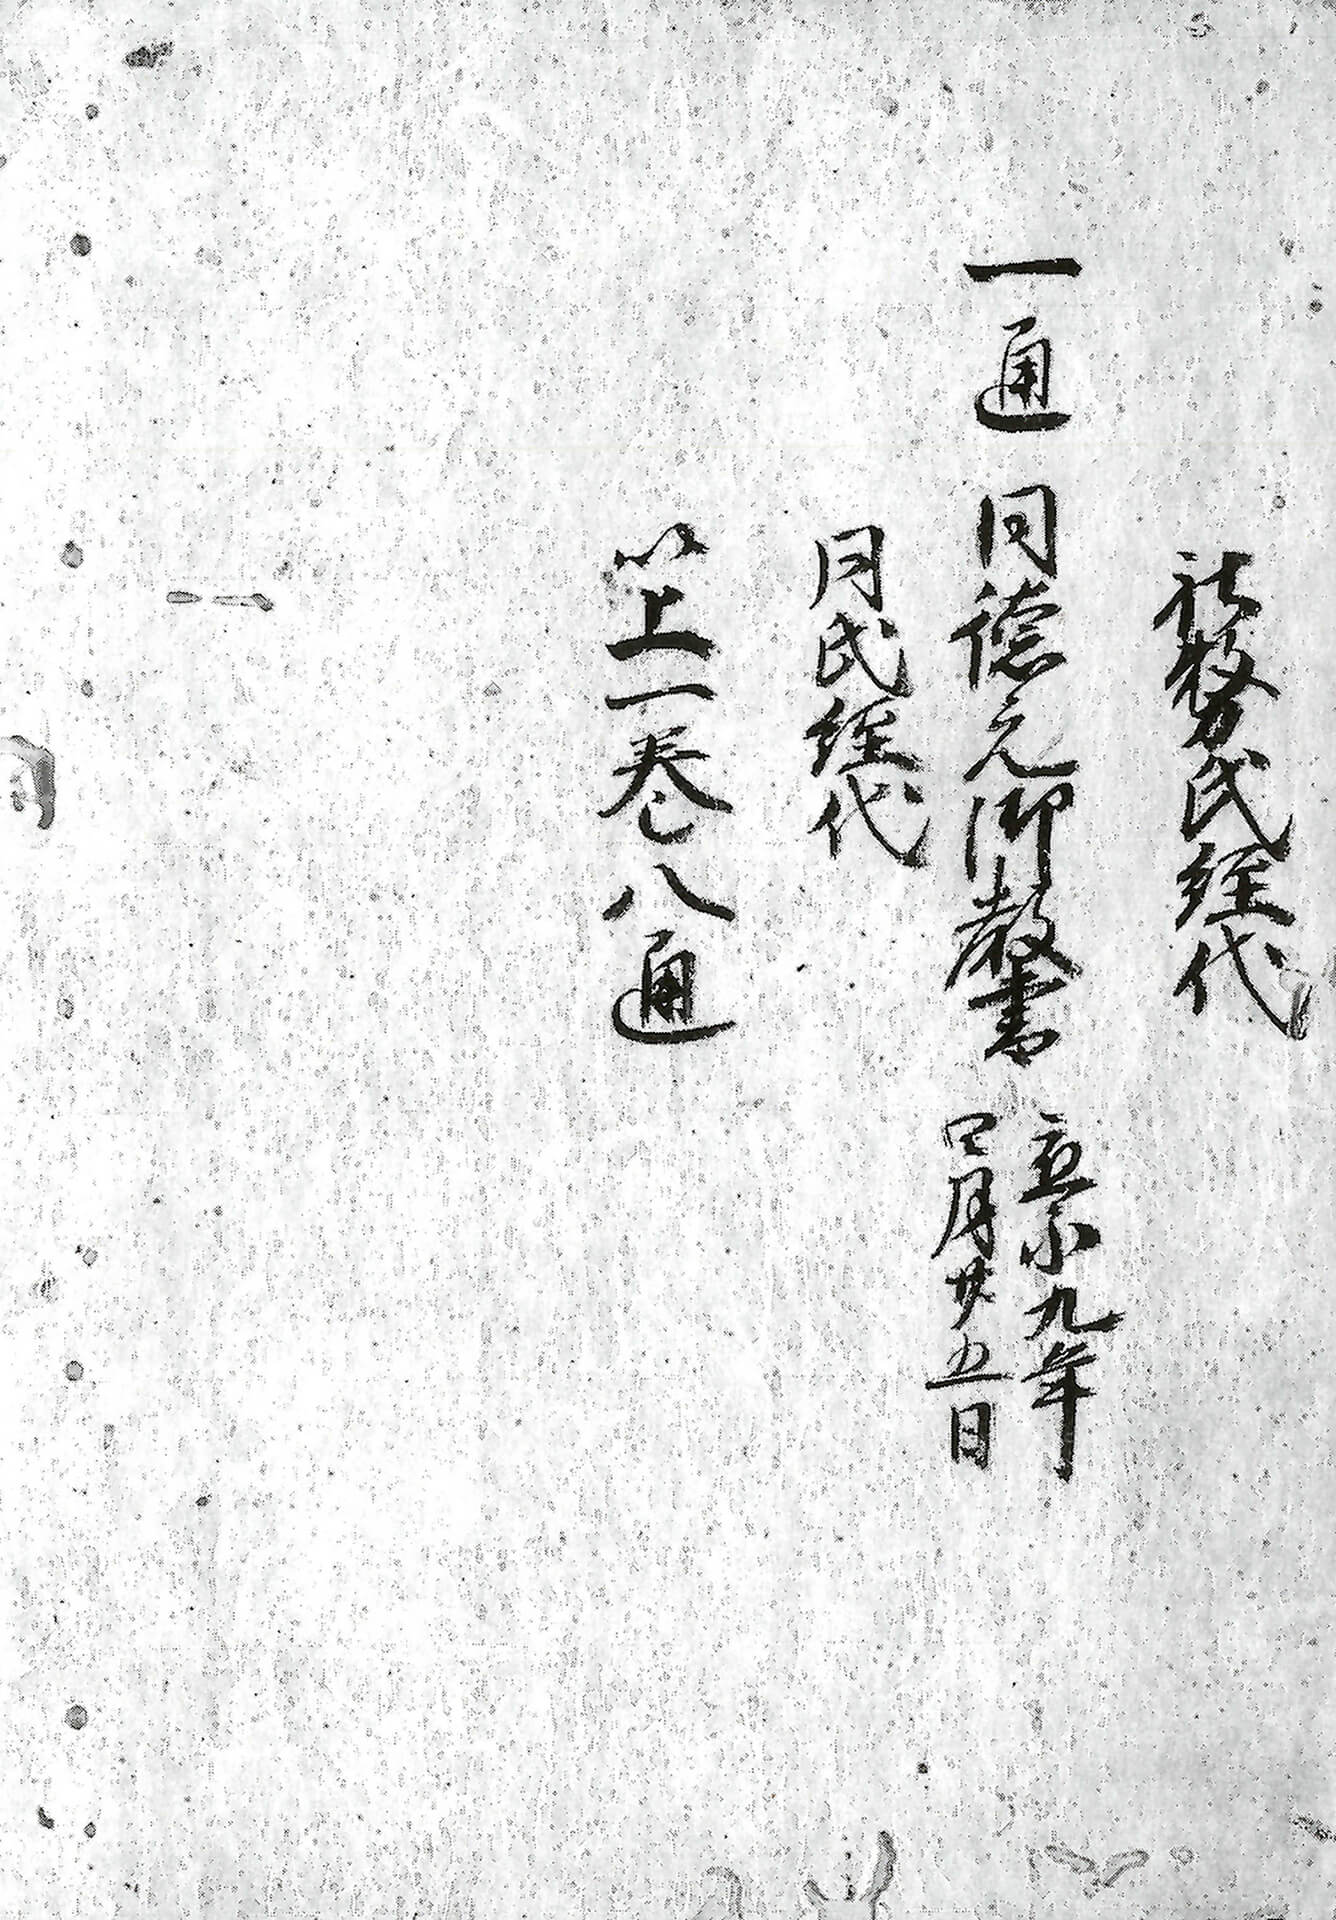 社務氏経代
一通 同徳元御教書 應永九年
四月廿五日
同氏経代
以上一巻八通